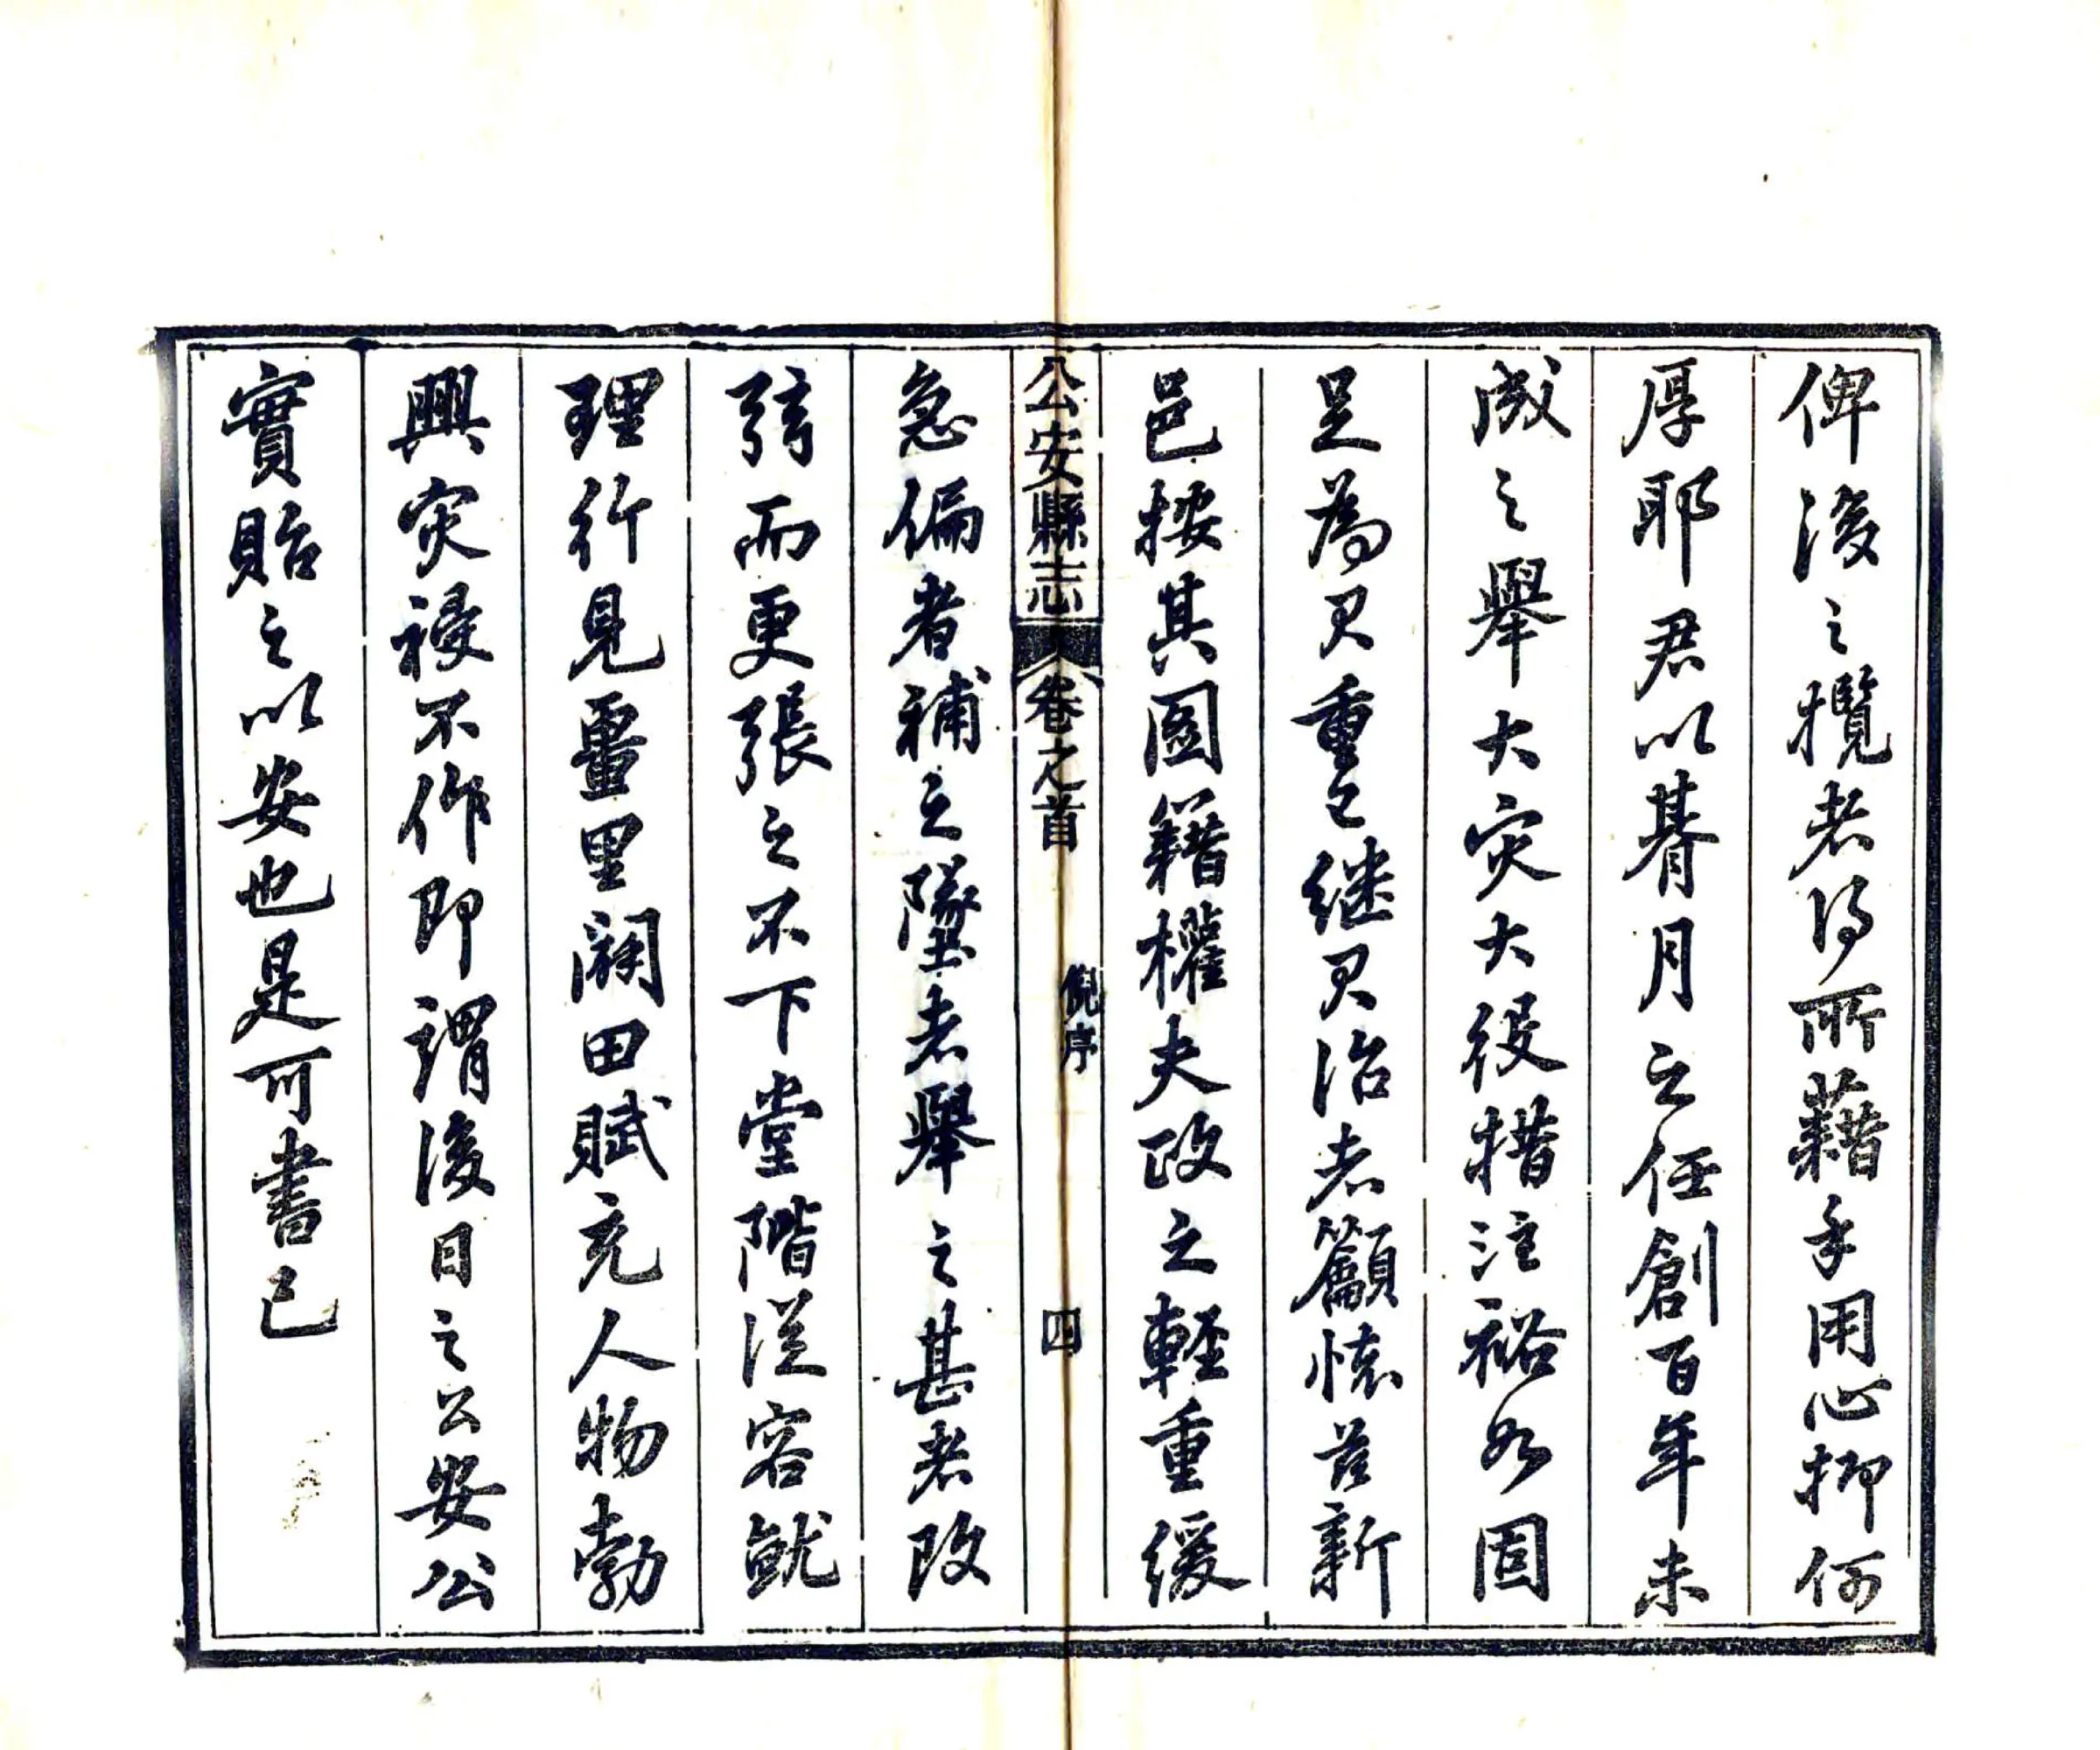 俾後之攬者得所藉手用心抑何
厚耶君以朞月之任創百年未
成之舉大灾大役措注裕如固
足為君重已繼君治者籲懷茲新
邑按其圖籍權夫政之輕重緩
公安縣志 卷之首 倪序 四
急偏者補之墜者舉之甚者改
弦而更張之不下堂階從容就
理行見畺里闢田賦充人物勃
興灾祲不作即謂後日之公安公
實貽之以安也是可書已